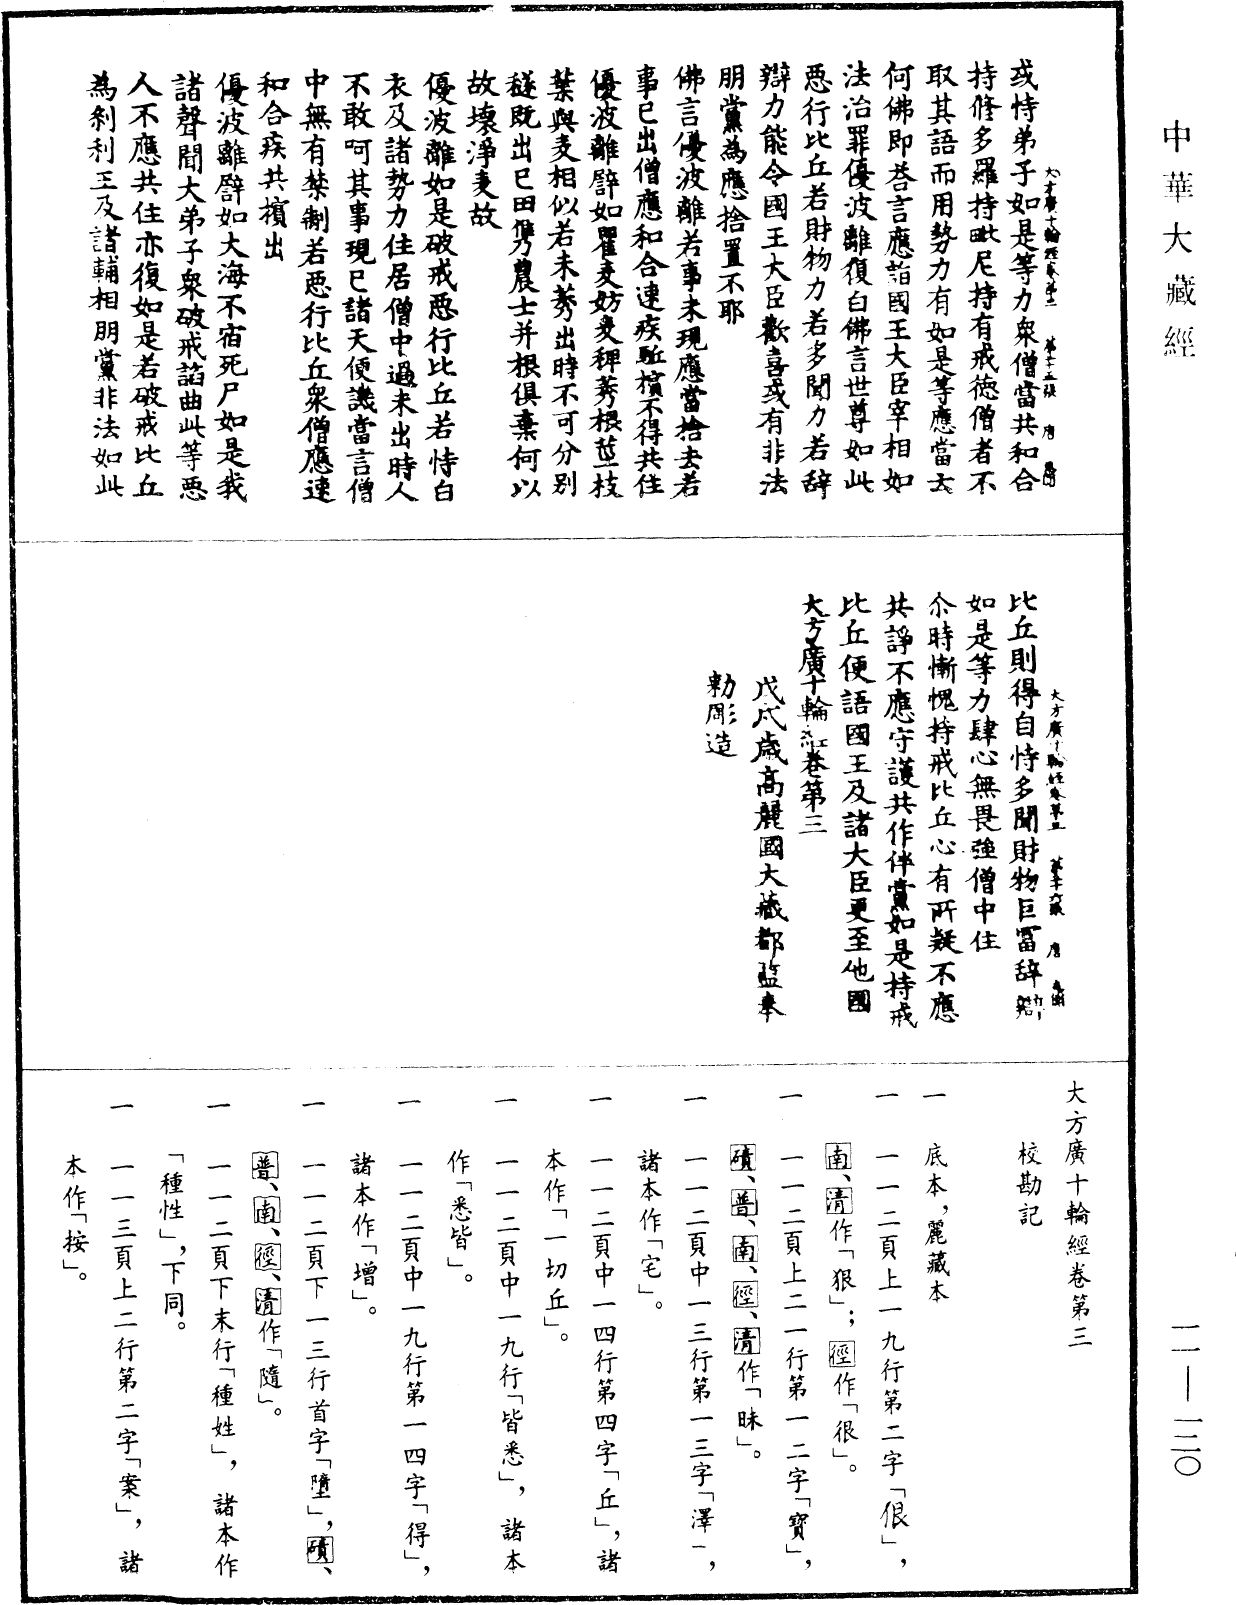 中華大藏經
大方廣十輪經卷第三　第十五張　唐
或恃弟子如是等力衆僧當共和合
持修多羅持毗尼持有戒德僧者不
取其語而用勢力有如是等應當云
何佛即荅言應詣國王大臣宰相如
法治罪優波離復白佛言世尊如此
惡行比丘若財物力若多聞力若辝
辯力能令國王大臣歡喜或有非法
朋黨為應捨置不耶
佛言優波離若事未現應當捨去若
事已出僧應和合速疾駈擯不得共住
優波離譬如瞿麦妨麦稗莠根莖枝
葉與麦相似若未莠出時不可分别
穟既出已田夫農士并根俱棄何以
故壞淨麦故
優波離如是破戒惡行比丘若恃白
衣及諸勢力住居僧中過未出時人
不敢呵其事現已諸天便譏當言僧
中無有禁制若惡行比丘衆僧應速
和合疾共擯出
優波離譬如大海不宿死尸如是我
諸聲聞大弟子衆破戒諂曲此等惡
人不應共住亦復如是若破戒比丘
為剎利王及諸輔相朋黨非法如此
大方廣十輪經卷第三　第十六張　唐
比丘則得自恃多聞財物巨冨辝辯
如是等力肆心無畏強僧中住
尒時慚愧持戒比丘心有所疑不應
共諍不應守護共作伴黨如是持戒
比丘便語國王及諸大臣更至他國
大方廣十輪經卷第三
戊戌歲高麗國大藏都監奉
勑彫造
大方廣十輪經卷第三
校勘記
一　底本,麗藏本
一　一一二頁上一九行第二字「佷」,
南、清作「狠」;徑作「很」。
一　一一二頁上二一行第一二字「寶」,
磧、普、南、徑、清作「昧」。
一　一一二頁中一三行第一三字「澤」,
諸本作「宅」。
一　一一二頁中一四行第四字「丘」,諸
本作「一切丘」。
一　一一二頁中一九行「皆悉」,諸本
作「悉皆」。
一　一一二頁中一九行第一四字「得」,
諸本作「增」。
一　一一二頁下一三行首字「墮」,磧、
普、南、徑、清作「隨」。
一　一一二頁下末行「種姓」,諸本作
「種性」,下同。
一　一一三頁上二行第二字「案」,諸
本作「按」。
一一—一二〇